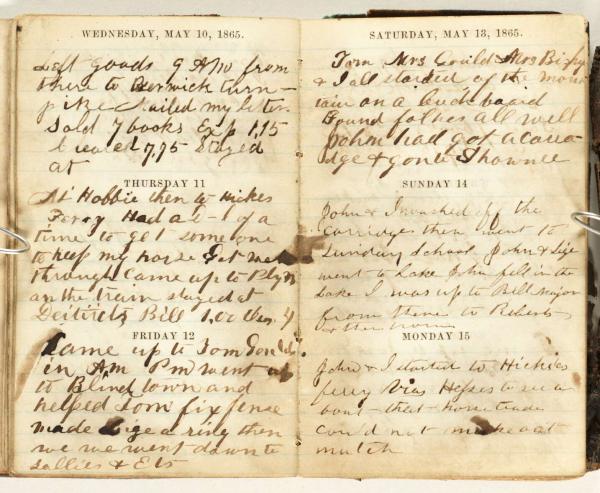 WEDNESDAY, MAY 10, 1865.
Left goods 9 A m from
there to Berwick turn-
pike mailed my leter
Sold 7 books Exp 1,15
7,75 Stayed
at
THURSDAY 11
At Hobbie then to Hickes
Ferry Had a of a
time to get some one
to keep my horse Got
through Came up to Plym
on the train stayed at
Bill 1.00
FRIDAY 12
Came up to Tom
in A.m P m went up
to Blind town and
helped Tom fix fense
made a ring then
we we went down to
Sallies & Els
SATURDAY, MAY 13, 1865.
Tom Mrs Gould Mrs
& I all started of the moun
tain on a buck board
Found folkes all well
John had got a Caira
dge & gone Shawnee
SUNDAY 14
John & I washed off the
Carridges then went to
Sunday School John & Lige
went to Lake John fell in the
Lake I was up to Bill Major
from there to Roberts
& then home
MONDAY 15
John & I started to Hickies
ferry Vias to see a
bout that horse trade
Could not make out
mutch